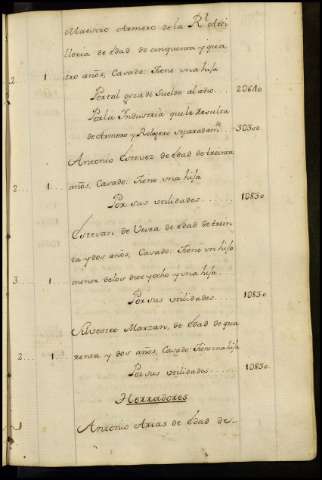 Maestro Armero de la Rl. Arti
lleria de edad de cinquenta y qua
2 1 tro años, Casado: Tiene una hija
Por tal goza de Sueldo al año 2061o
Por la Industria que le Resulta
de Armero y Relojero Separadamte. 303oo
Antonio Estevez de Edad de treinta
2 1 años, Casado: Tiene una hija
Por sus utilidades 1085o
Estevan de Ueira de edad de trein
ta y dos años, Casado: Tiene un hijo
3 1 menor de los diez y ocho y una hija
Por sus utilidades 1085o
Silvestre Marzan, de Edad de qua
2 1 renta y dos años, Casado: Tiene una hija
Por sus utilidades 1085o
Herradores
Antonio Arias de Edad de